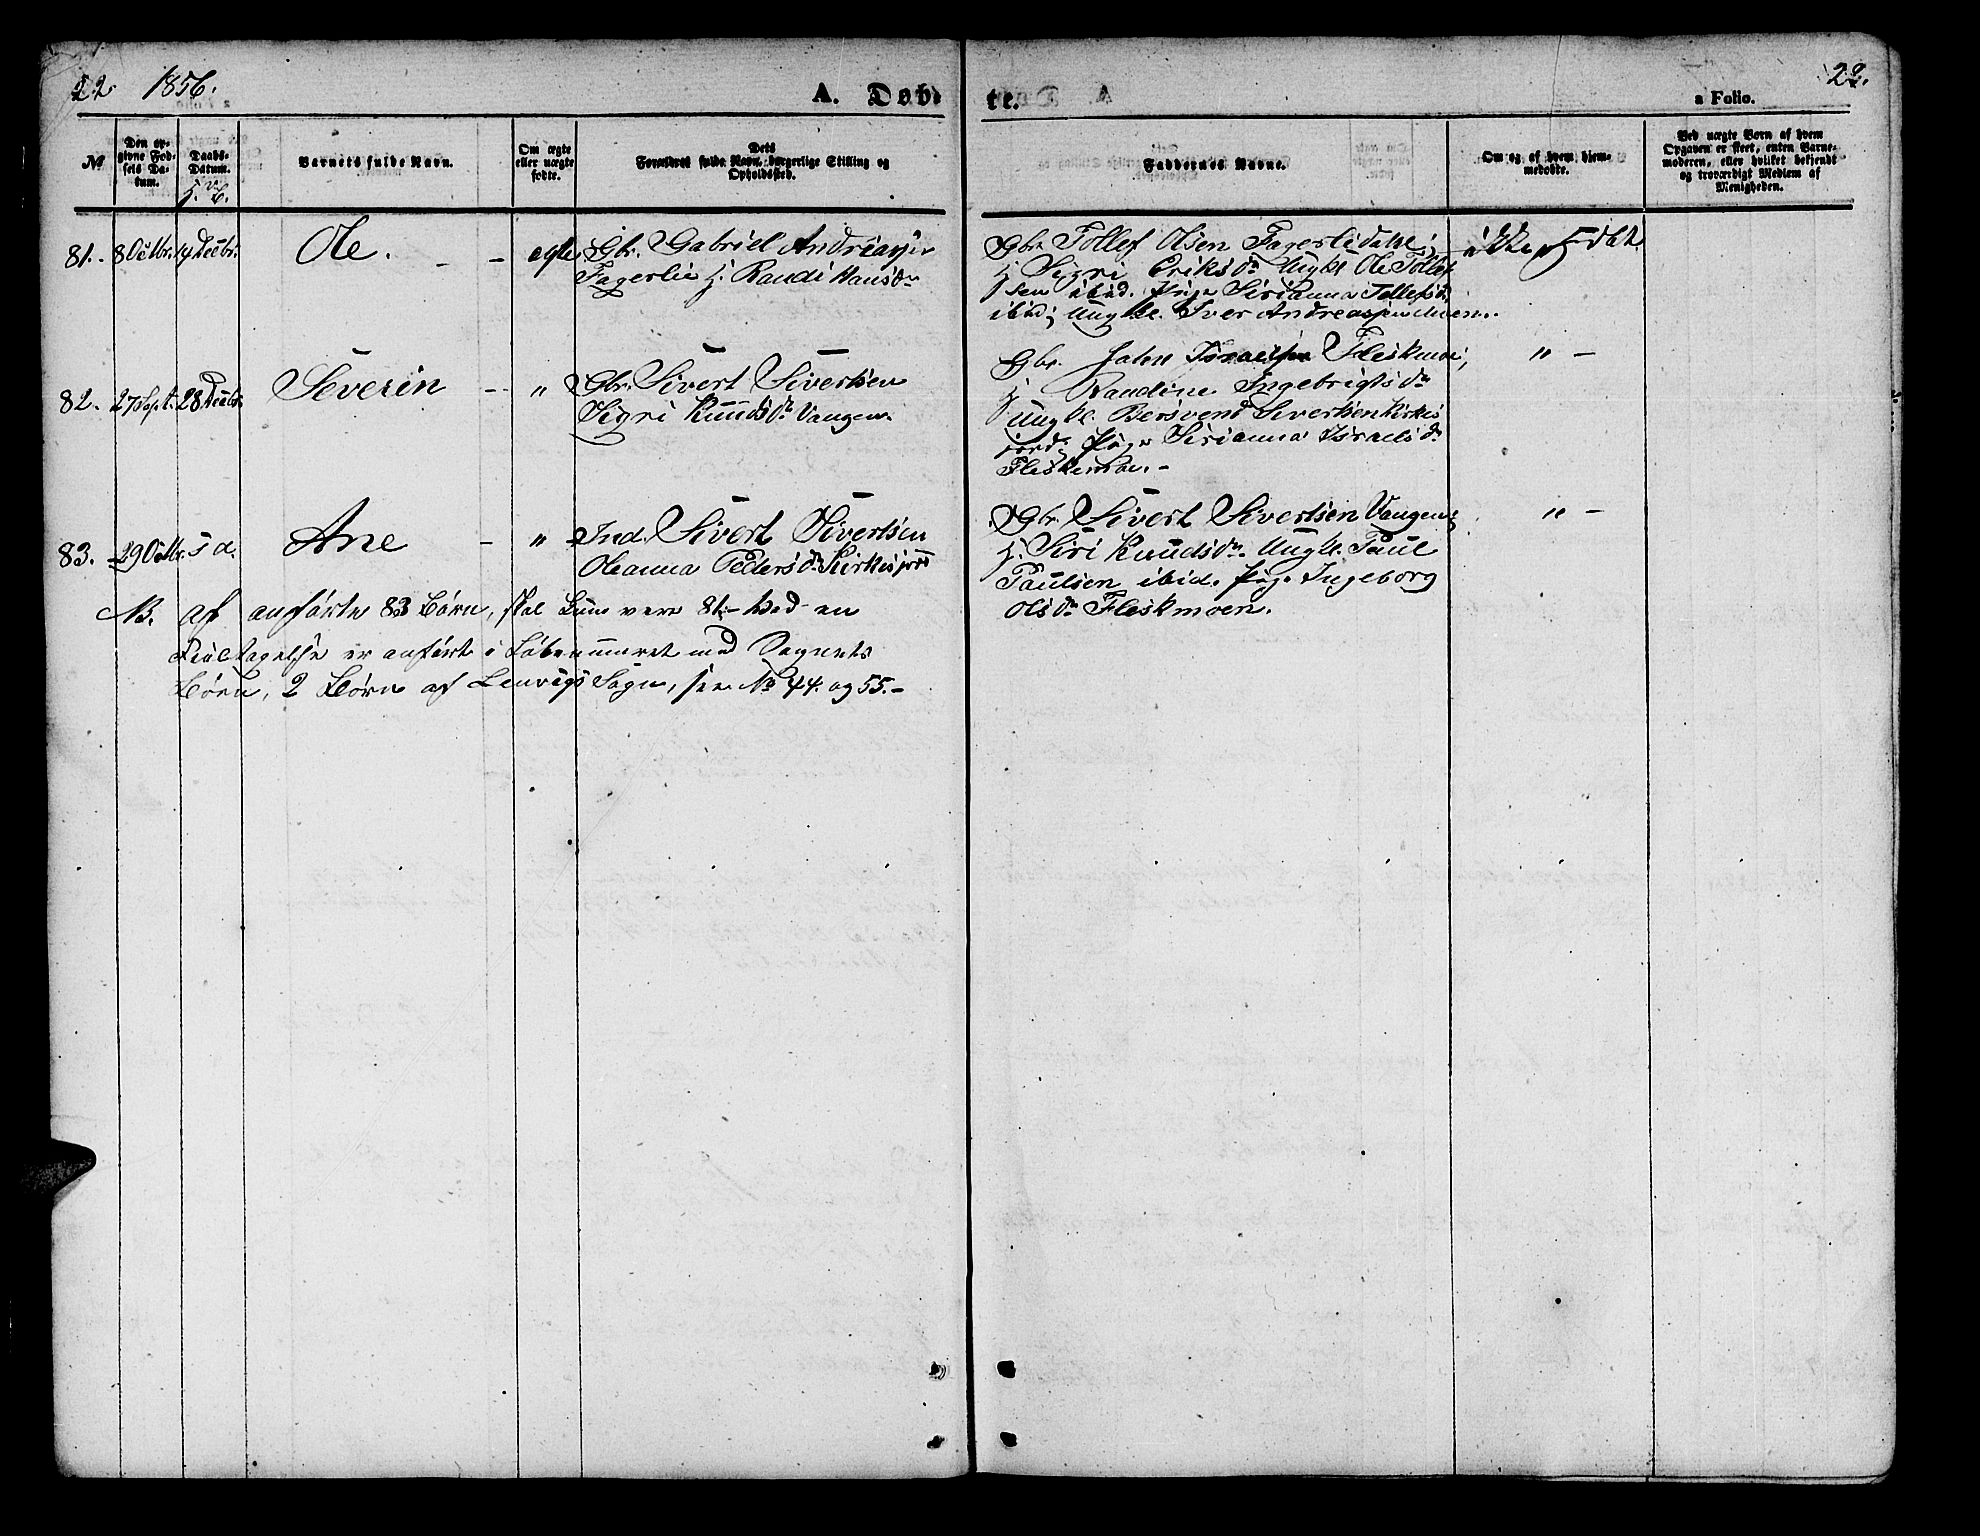 22. 1856.
A. Døb-
te.
a Folio.
22.
№
Den op-
givne Fød-
sels Da-
tum.
Daabs-
Datum.
Barnets fulde Navn.
Om ægte
eller uægte
fødte.
Dets
Forældres fulde Navn, borgerlige Stilling og
Opholdssted.
Faddernes Navne.
Om og af hvem hjem-
medøbte.
Ved uægte Børn af hvem
Opgaven er skeet, enten Barne-
moderen, eller hvilket bekjendt
og troværdigt Medlem af
Menigheden.
81. 8 Octbr. 14 Decbr. Ole. - - egte Gbr. Gabriel Andreasen
Fagerlie h. Randi Hansdr
Gbr. Tollef Olsen Fagerlidahl;
h. Sigri Eriksdr Ungkl. Ole Tollef
sen ibid. Pige Sirianna Tollefsdr
ibid; Ungkl. Iver Andreassen Moen.
ikke hjdøbt
82. 27 Sept. 28 Decbr. Severin - " Gbr. Sivert Sivertsen
Sigri Knudsdr Vangen.
Gbr. John Israelsen Fleskmoe;
h. Randine Ingebrigtsdr
Ungkl. Bersvend Sivertsen Kirkes
jord; Pige Sirianna Israelsdr
Fleskmoe. -
" -
83. 29 Octbr. s d. Ane - " Ind. Sivert Sivertsen
Oleanna Pedersdr Kirkesjord
Gbr. Sivert Sivertsen Vangen;
h. Siri Knudsdr. Ungkl. Paul
Paulsen ibid. Pige Ingeborg
Olsdr Fleskmoen.
" -
NB. af anførte 83 Børn, skal kun vere 81.- Ved en
Feiltagelse er anført i Løbenummeret med Sognets
Børn, 2 Børn af Lenvigs Sogn, see No 44. og 55.-